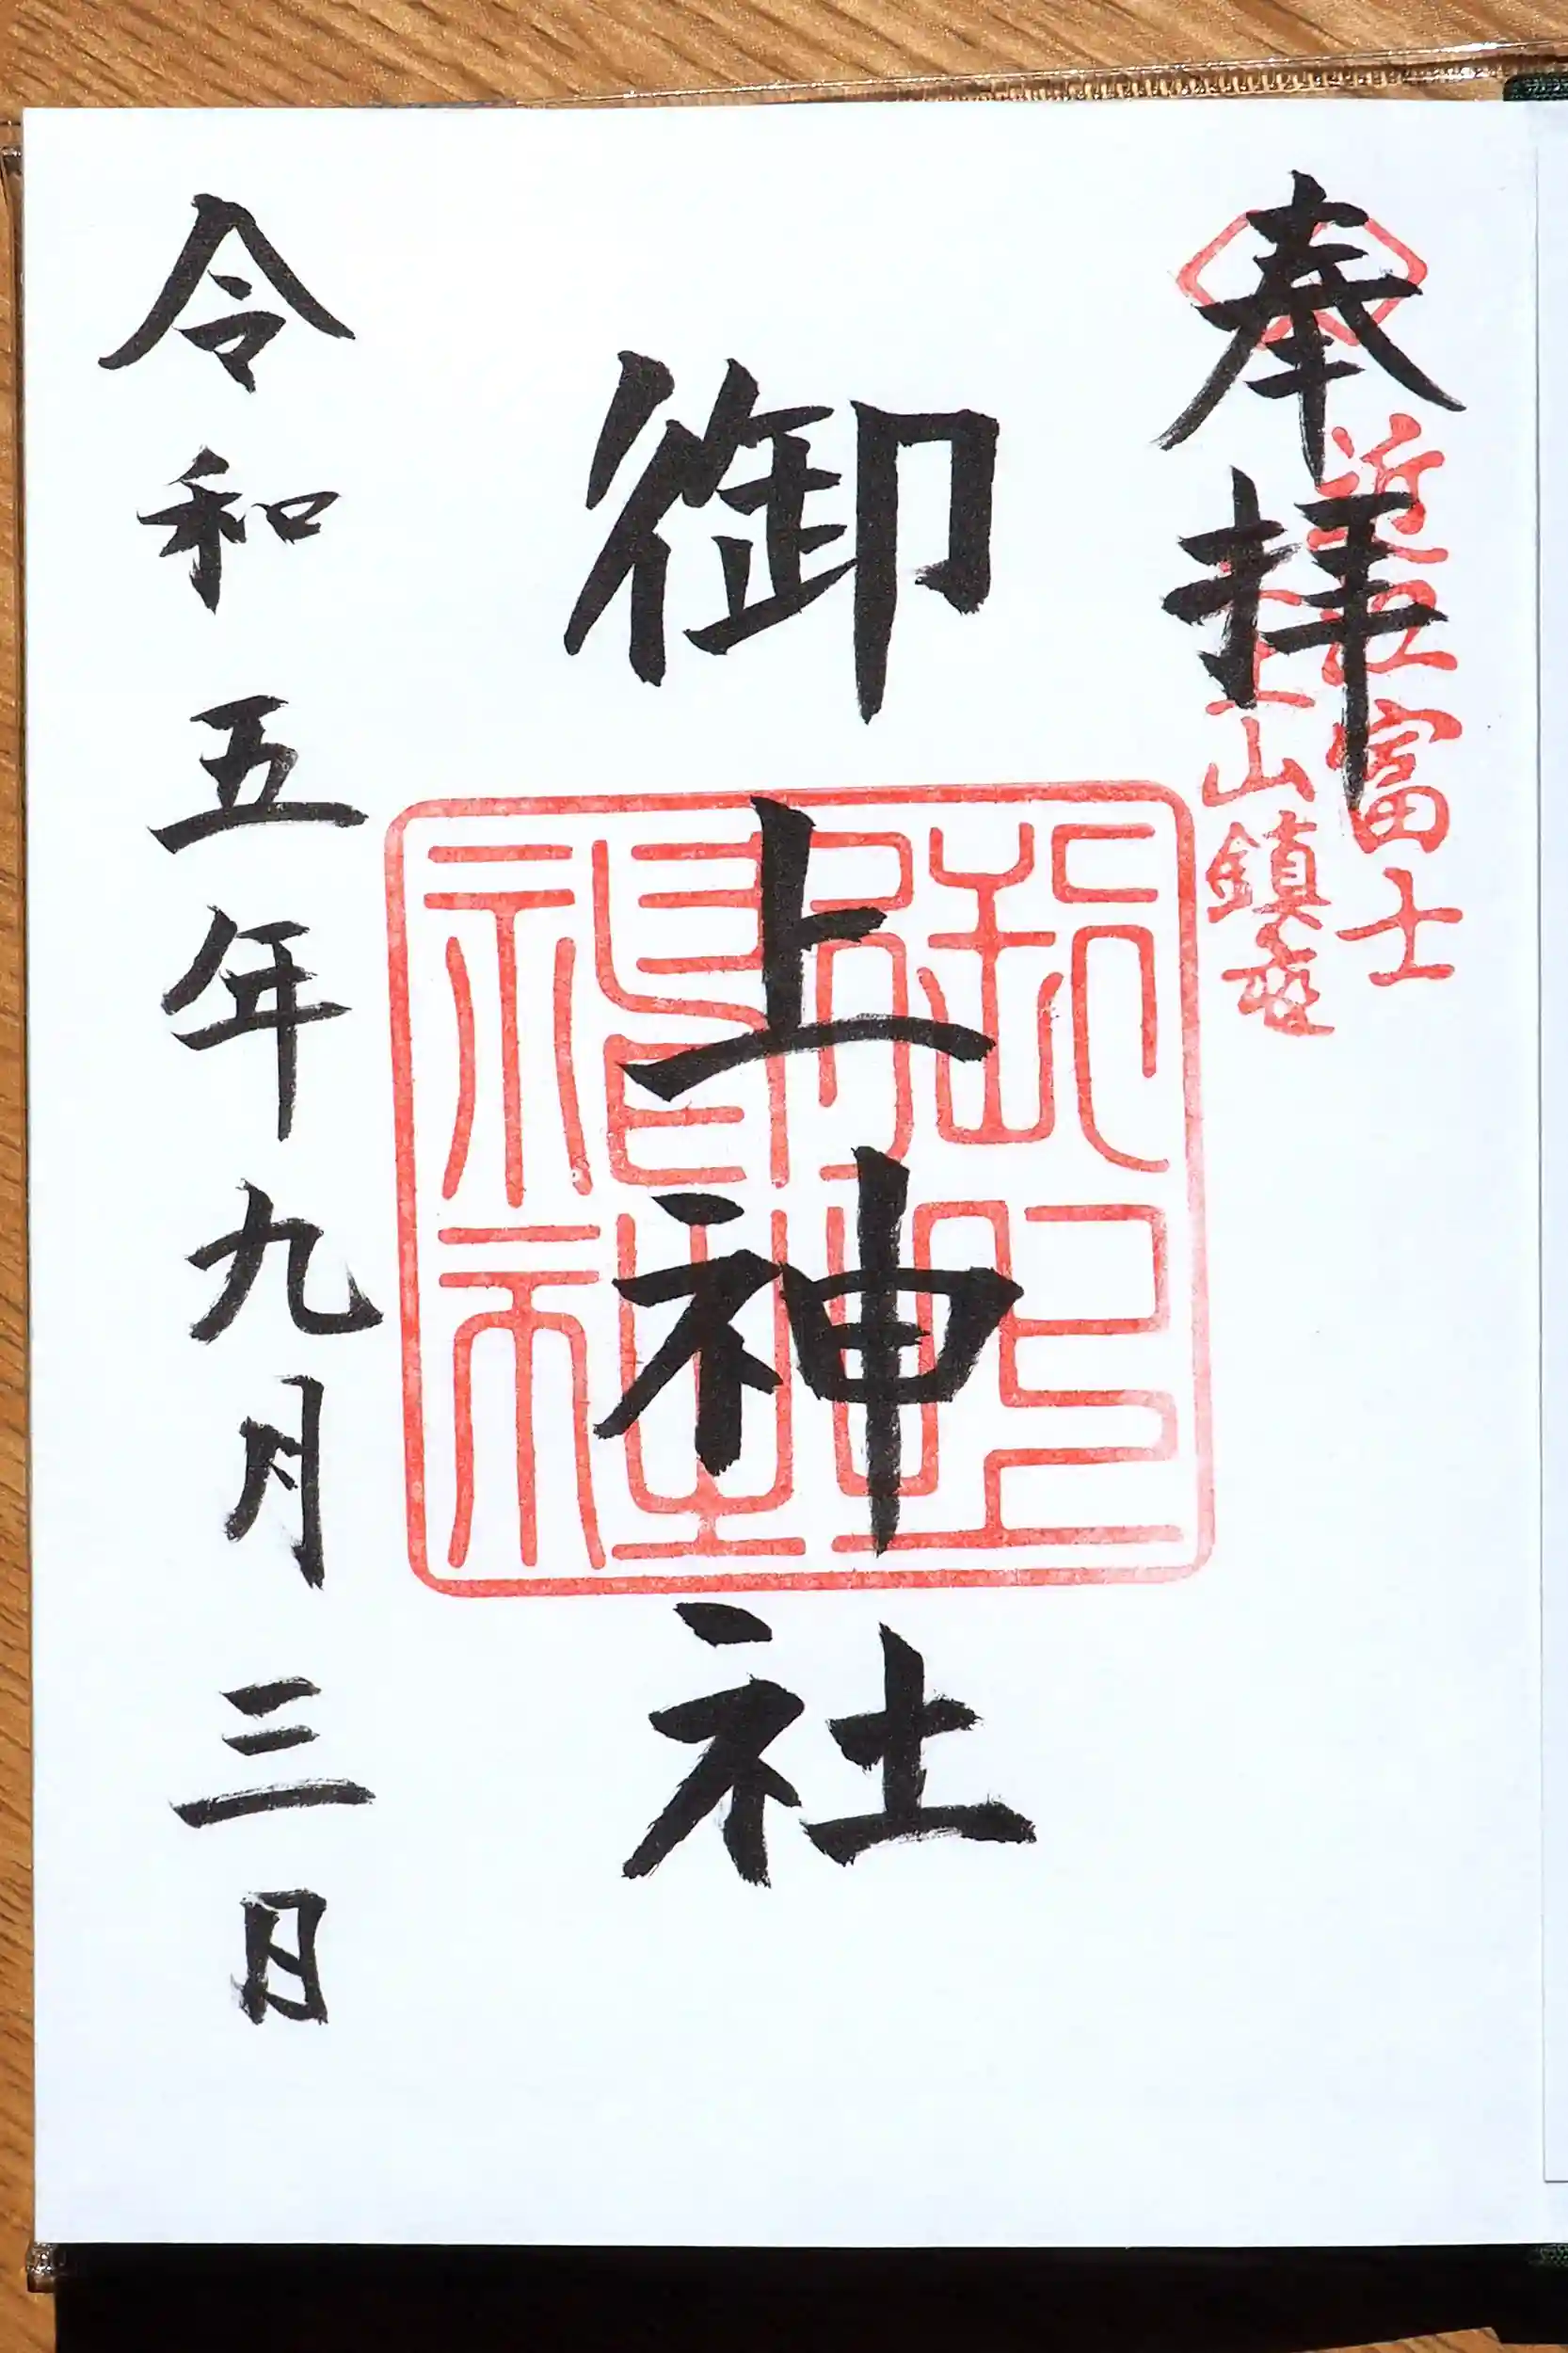 奉拝
近江富士
三上山鎮座
御上神社
御上神社
令和五年九月三日